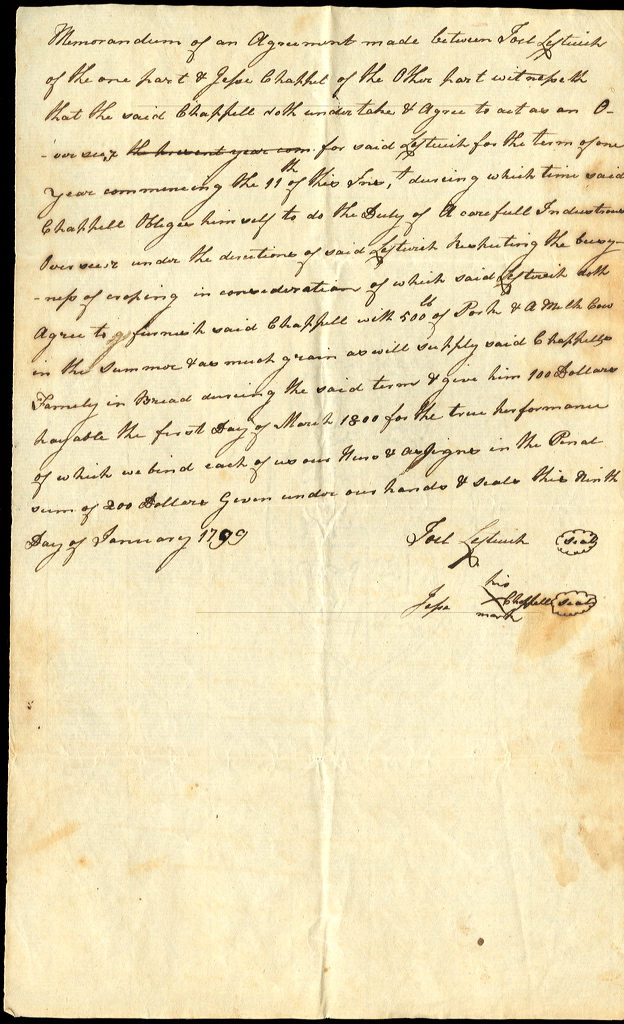 Memorandum of an Agreement made between Joel Leftwich
of the one part & Jesse Chappel of the Other part witnesseth
that the said Chappell doth undertake & Agree to act as an O-
-verseer the present year com for said Leftwich for the term of one
year commencing the 11th of this Inst, during which time said
Chappell Obliges himself to do the Duty of A carefull Industrious
Overseer under the directions of said Leftwich Respecting the busy-
-ness of croping in consideration of which said Leftwich doth
Agree to furnish said Chappell with 500lb of Pork & A Milk Cow
in the Summer & as much grain as will supply said Chappells
Family in Bread dureing the said term & give him 100 Dollars
payable the first Day of March 1800 for the true performance
of which we bind each of us our Heirs & assigns in the Penal
sum of 200 Dollars Given under our hands & seals this Ninth
Day of January 1799
Joel Leftwich seal
his
Jesse X Chappell seal
mark